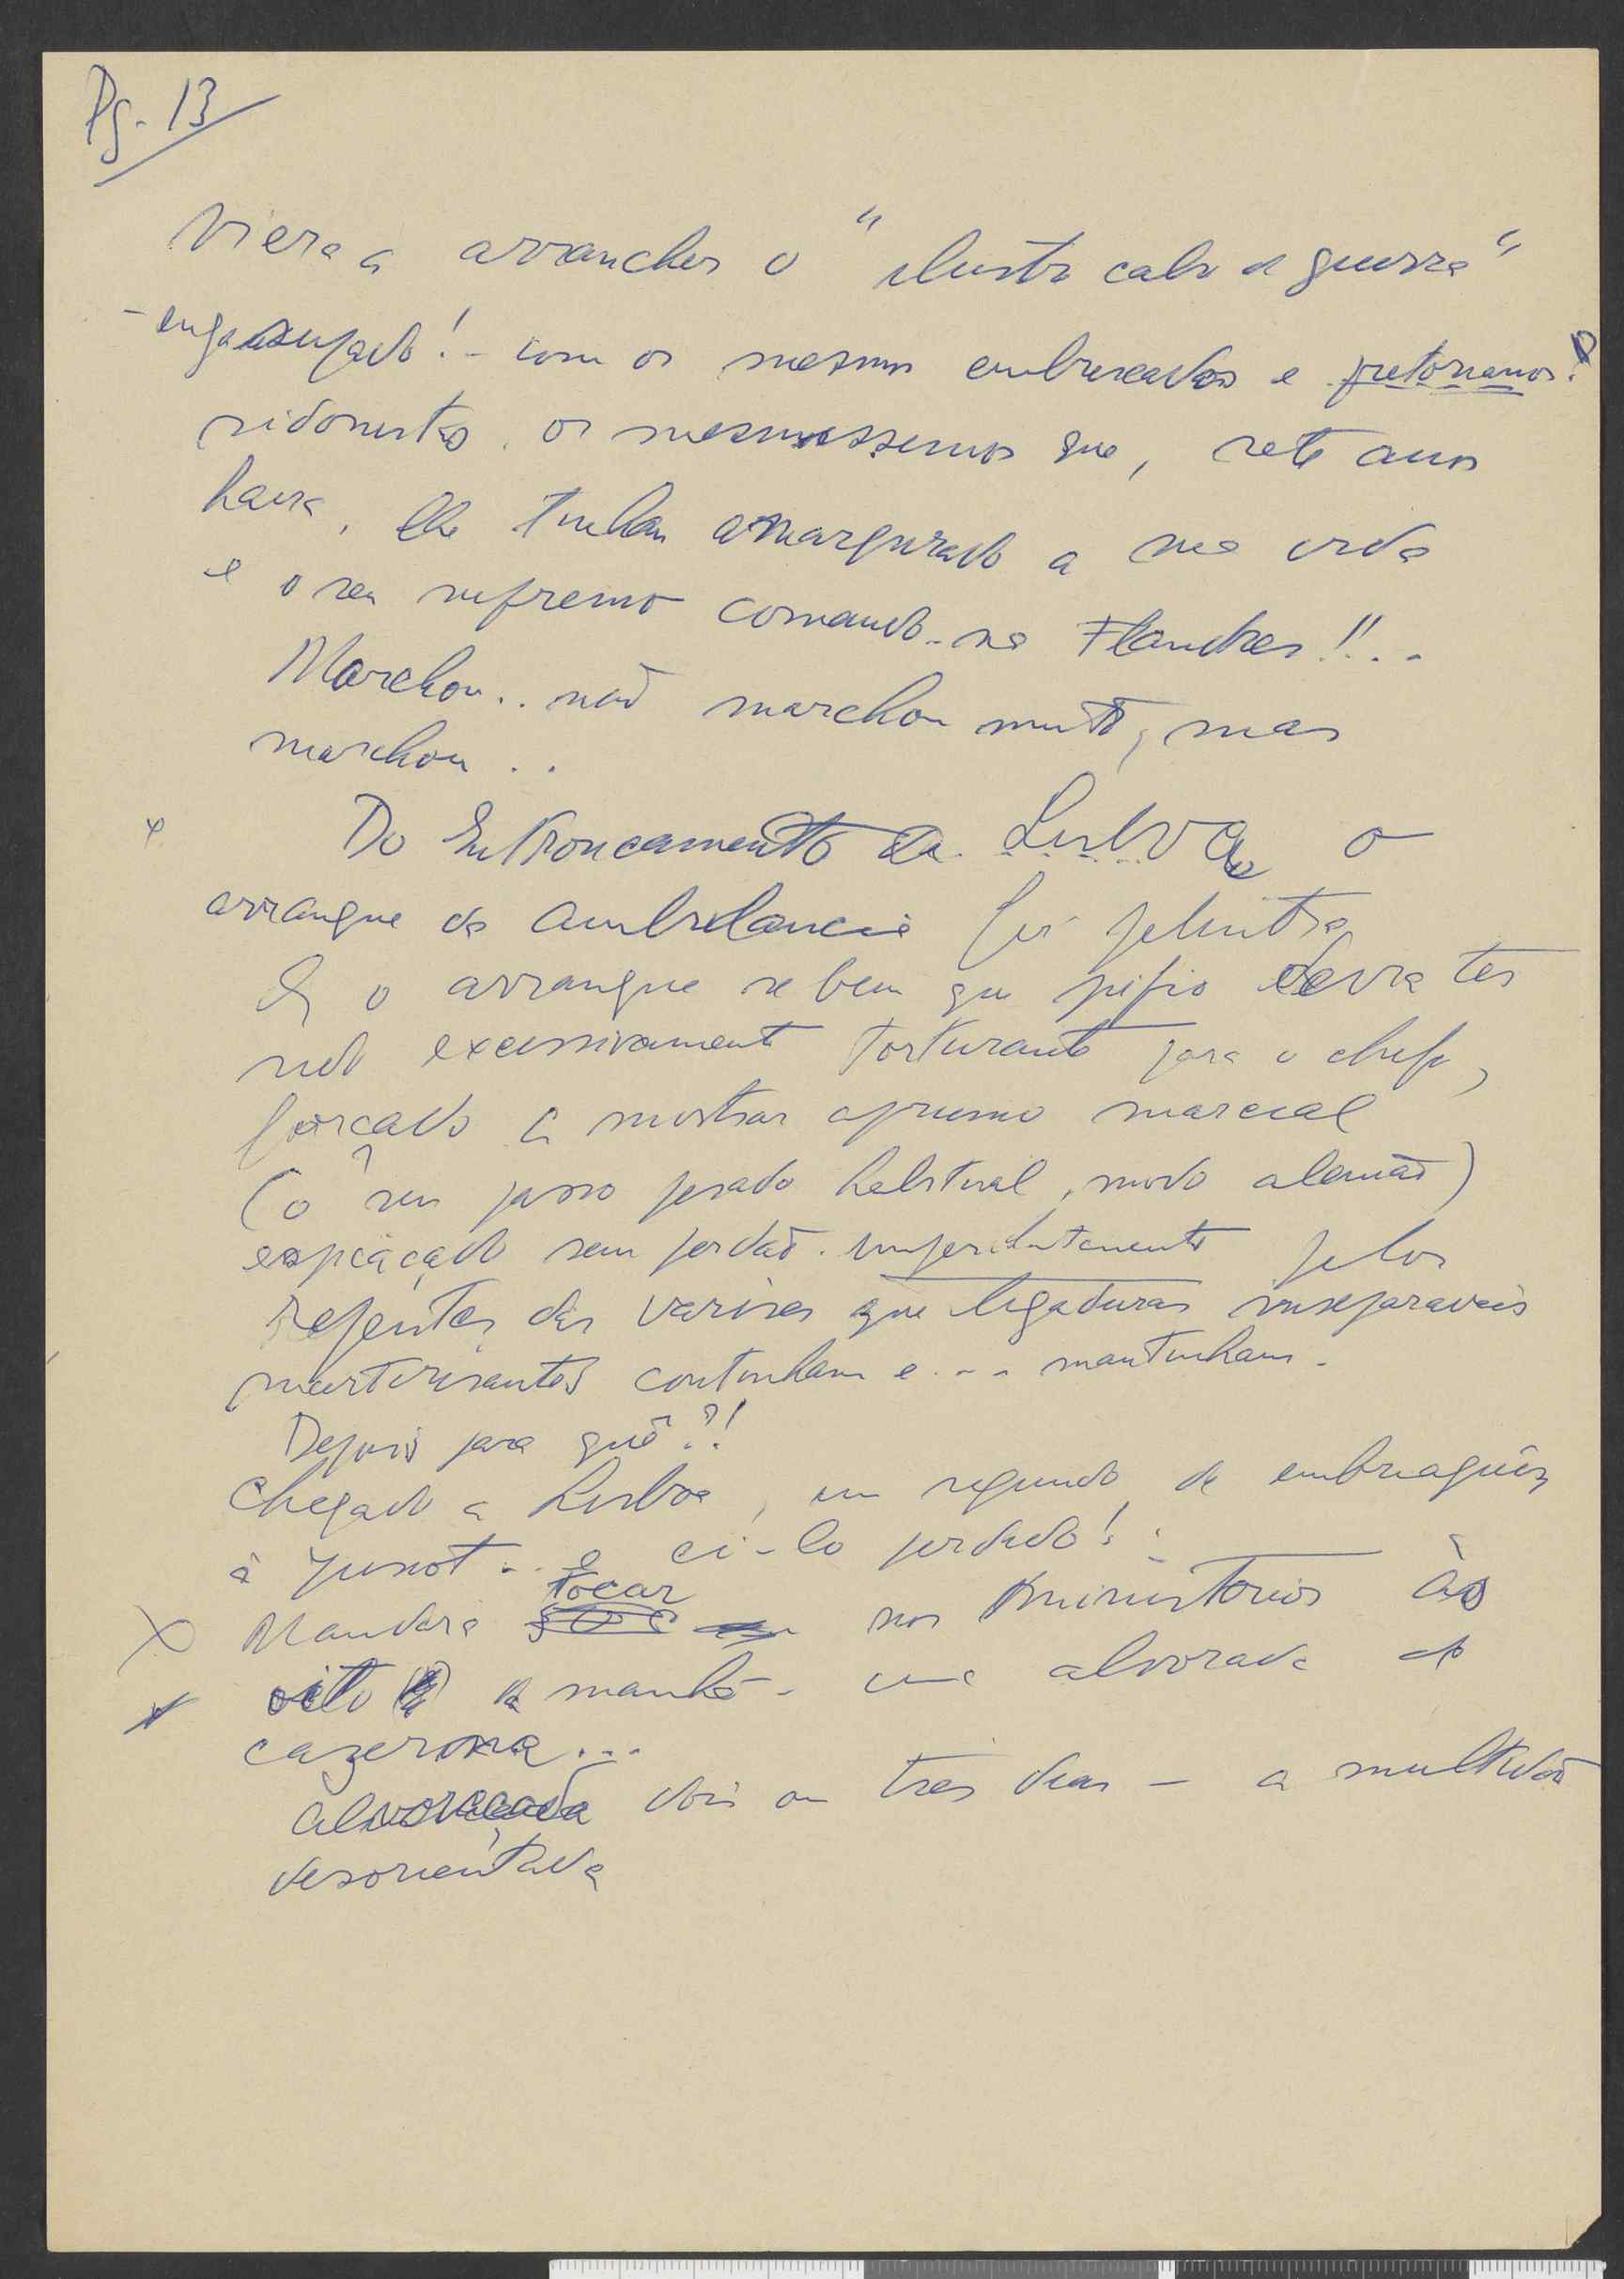 Pg. 13
Viera a arranchar o "ilustre cabo de guerra"
- engasupado! - com os mesmos embuscados e pretorianos?
sidonistas, os mesmissemos que, sete anos
havia, lhe tinham amargurado a sua vida
e o seu supremo comando na Flandres!!..
Marchou.. não marchou muito, mas
marchou ..
Do Entroncamento a Lisboa, o
arrangue da ambulancia foi pelintra
E o arranque se bem que pifio devia ter
sido excessivamente torturante para o chefe,
forçado a mostrar aprumo marcial
(o seu passo pesado habitual, modo alemão)
espicaçado sem perdão
repentes das varises que ligaduras inseparaveis
martirisantes continham e ... mantinham.
Depois para quê?!
Chegado a Lisboa, um segundo de embriaguêz
à Junot .. e ei-lo perdido!.
Mandara tocar nos ministerios às
oito da manhã - uma alvorada de
cazerna...
alvoraçada dois ou três dias - a multidão
desorientada